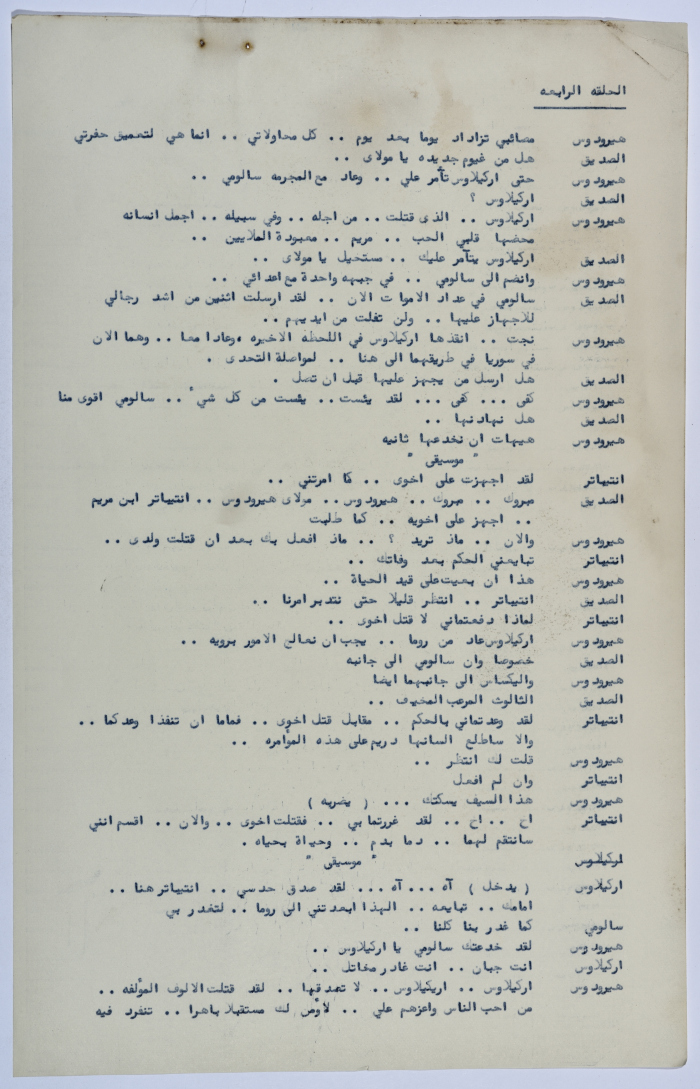 الحلقه الرابعه
هيرودوس مصائبي تزداد يوما بعد يوم .. كل محاولاتي .. انما هي لتعميق حفرتي
الصديق هل من غيوم جديده يا مولاى ..
هيرودوس حتى اركيلاوس تأمر علي .. وعاد مع المجرمه سالومي ..
الصديق اركيلاوس ؟
هيرودوس اركيلاوس .. الذى قتلت .. من اجله .. وفي سبيله .. اجمل انسانه
محضها قلبي الحب .. مريم .. معبودة الملايين ..
الصديق اركيلاوس يتآمر عليك .. مستحيل يا مولاى ..
هيرودوس وانضم الى سالومي .. في جبهه واحدة مع اعدائي ..
الصديق سالومي في عداد الاموات الان .. لقد ارسلت اثنين من اشد رجالي
للاجهاز عليها .. ولن تفلت من ايديهم ..
هيرودوس نجت .. انقذها اركيلاوس في اللحظه الاخيره ،وعادا معا .. وهما الان
في سوريا في طريقهما الى هنا .. لمواصلة التحدى .
الصديق هل ارسل من يجهز عليها قبل ان تصل .
هيرودوس كفى ... كفى ... لقد يئست.. يئست من كل شيء .. سالومي اقوى منا
الصديق هل نهادنها ..
هيرودوس هيهات ان نخدعها ثانيه
" موسيقى "
انتيباتر لقد اجهزت على اخوى .. كما امرتني ..
الصديق مبروك .. مبروك .. هيرودوس.. مولاى هيرودوس .. انتيباتر ابن مريم
.. اجهز على اخويه .. كما طلبت
هيرودوس والان .. ماذ تريد ؟ .. ماذ افعل بك بعد ان قتلت ولدى ..
انتيباتر تبايعني الحكم بعد وفاتك ..
هيرودوس هذا ان بقيت على قيد الحياة ..
الصديق انتيباتر .. انتظر قليلا حتى نتدبر امرنا ..
انتيباتر لماذا دفعتماني لا قتل اخوى ..
هيرودوس اركيلاوس عاد من روما .. يجب ان نعالج الامور برويه ..
الصديق خصوصا وان سالومي الى جانبه
هيرودوس واليكساس الى جانبهما ايضا
الصديق الثالوث المرعب المخيف ..
انتيباتر لقد وعدتماني بالحكم .. مقابل قتل اخوى .. فماما ان تنفذا وعدكما ..
والا ساطلع السانها دريم على هذه المؤامره ..
هيرودوس قلت لك انتظر ..
انتيباتر وان لم افعل
هيرودوس هذا السيف يسكتك ... ( يضربه )
انتيباتر اخ .. اخ .. لقد غررتما بي .. فقتلت اخوى .. والان .. اقسم انني
سانتقم لهما .. دما بدم .. وحياة بحياه .
اركيلاوس " موسيقى "
اركيلاوس ( يدخل ) آه ... آه ... لقد صدق حدسي .. انتيباتر هنا ..
امامك .. تبايعه .. الهذا ابعدتني الى روما .. لتغدر بي
سالومي كما غدر بنا كلنا ..
هيرودوس لقد خدعتك سالومي يا اركيلاوس ..
اركيلاوس انت جبان .. انت غادر مخاتل ..
هيرودوس اركيلاوس .. اريكيلاوس .. لا تصدقها .. لقد قتلت الالوف المؤلفه ..
من احب الناس واعزهم علي .. لأومن لك مستقبلا باهرا .. تنفرد فيه